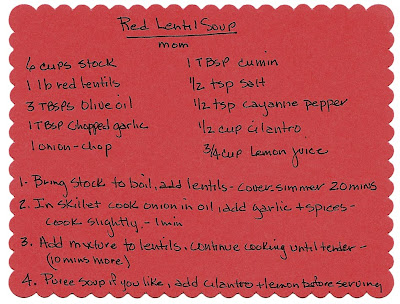 Red Lentil Soup
mom
6 cups stock
1 lb red lentils
3 TBSPS Olive oil
1 TBSP Chopped garlic
1 onion - chop
1 TBSP cumin
1/2 tsp salt
1/2 tsp cayanne pepper
1/2 cup cilantro
3/4 cup Lemon juice
1- Bring Stock to boil, add lentils - cover simmer 20 mins
2. In skillet cook onion in oil, add garlic + spices -
cook slightly - 1 min
3. Add mixture to lentils, continue cooking until tender -
(10 mins more)
4. Puree soup if you like, add cilantro + lemon before serving